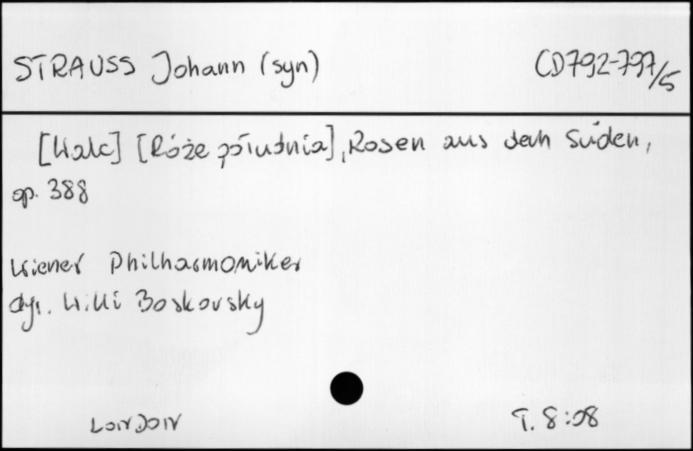 STRAUSS Johann (syn) CD792-797/5
[Walc] [Róże południa], Rosen aus dem Süden,
op. 388
Wiener Philharmoniker
dyr. Willi Boskovsky
LONDON T. 8:08